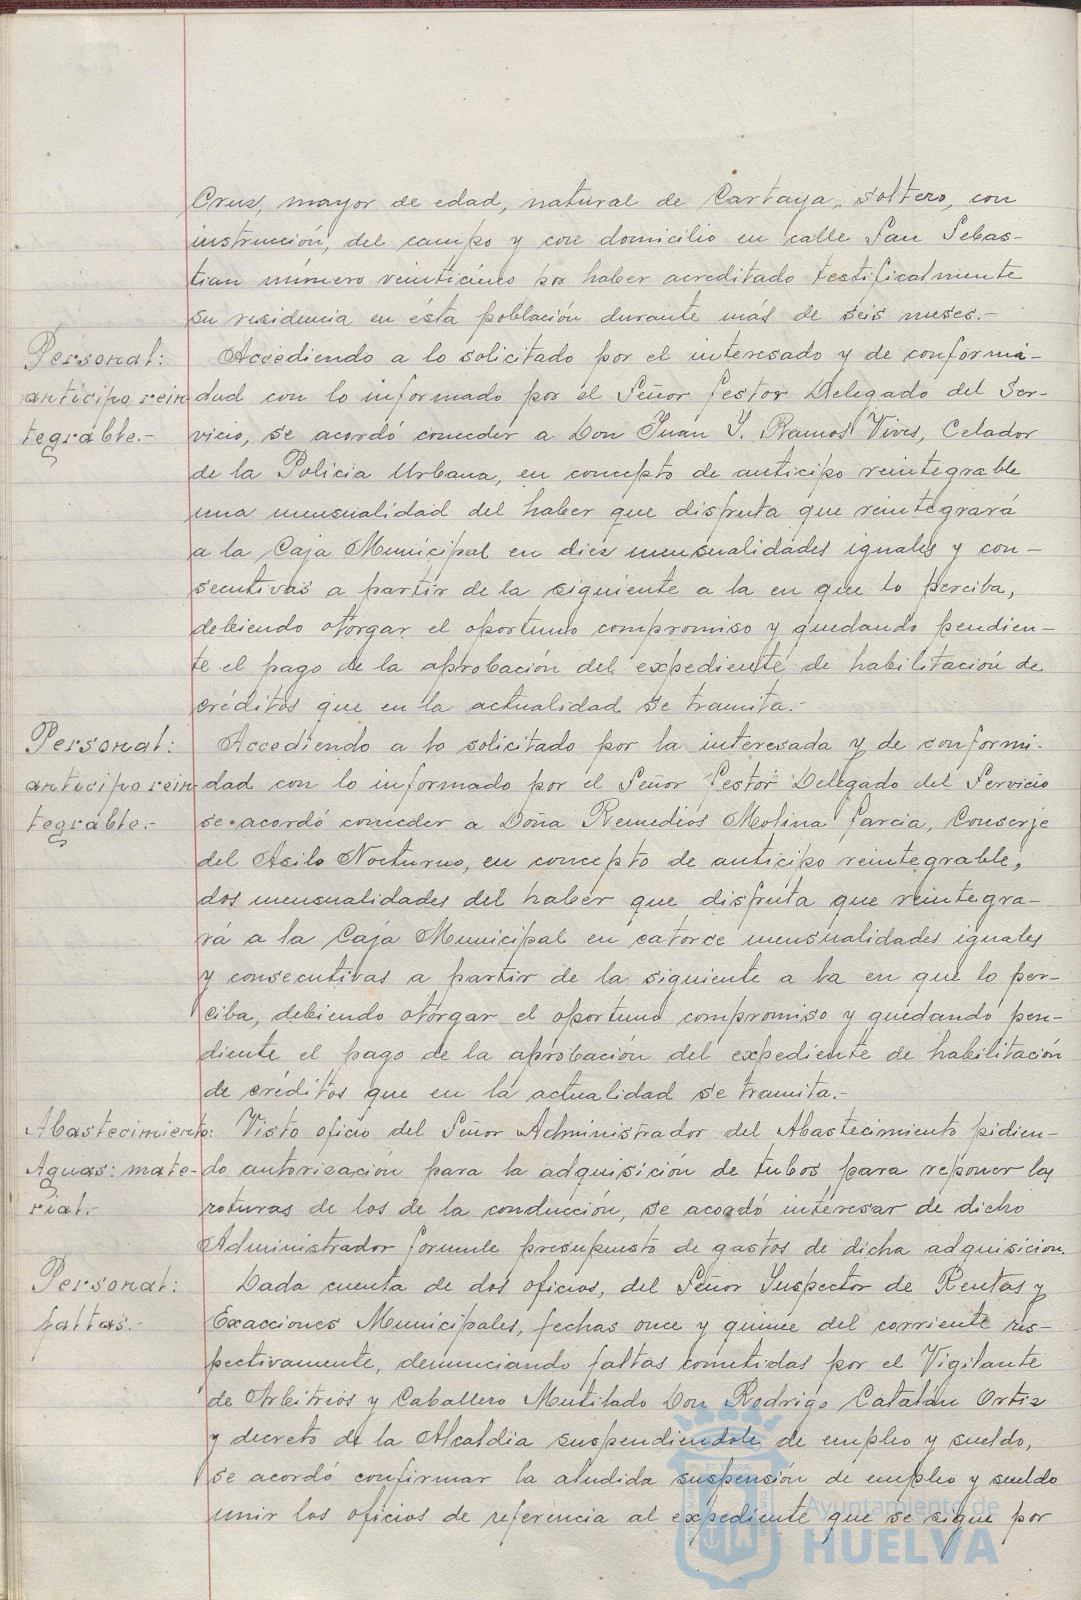 Cruz, mayor de edad, natural de Cartaya, soltero, con
instrucción, del campo y con domicilio en calle San Sebas-
tian número veinticinco por haber acreditado testificalmente
su residencia en ésta población durante más de seis meses.-
Personal:
anticipo rein
tegrable.-
Accediendo a lo solicitado por el interesado y de conformi-
dad con lo informado por el Señor Gestor Delegado del Ser-
vicio, se acordó conceder a Don Juan Y. Ramos Vives, Celador
de la Policia Urbana, en concepto de anticipo reintegrable
una mensualidad del haber que disfruta que reintegrará
a la Caja Municipal en diez mensualidades iguales y con-
secutivas a partir de la siguiente a la en que lo perciba,
debiendo otorgar el oportuno compromiso y quedando pendien-
te el pago de la aprobación del expediente de habilitación de
créditos que en la actualidad se tramita.-
Personal:
anticipo rein
tegrable.-
Accediendo a lo solicitado por la interesada y de conformi-
dad con lo informado por el Señor Gestor Delegado del Servicio
se acordó conceder a Doña Remedios Molina Garcia, Conserje
del Asilo Nocturno, en concepto de anticipo reintegrable,
dos mensualidades del haber que disfruta que reintegra-
rá a la Caja Municipal en catorce mensualidades iguales
y consecutivas a partir de la siguiente a la en que lo per-
ciba, debiendo otorgar el oportuno compromiso y quedando pen-
diente el pago de la aprobación del expediente de habilitación
de créditos que en la actualidad se tramita.-
Abastecimiento:
Aguas: mate-
rial.-
Visto oficio del Señor Administrador del Abastecimiento pidien-
do autorización para la adquisición de tubos para reponer las
roturas de los de la conducción, se acordó interesar de dicho
Administrador formule presupuesto de gastos de dicha adquisicion.
Personal:
faltas.-
Dada cuenta de dos oficios, del Señor Inspector de Rentas y
Exacciones Municipales, fechas once y quince del corriente res-
pectivamente, denunciando faltas cometidas por el Vigilante
de Arbitrios y Caballero Mutilado Don Rodrigo Catalán Ortiz
y decreto de la Alcaldia suspendiendole de empleo y sueldo,
se acordó confirmar la aludida suspensión de empleo y sueldo
unir los oficios de referencia al expediente que se sigue por
Ayuntamiento de
HUELVA